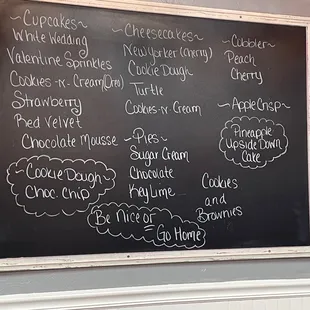 ~Cupcakes~
White Wedding
Valentine Sprinkles
Cookies-n-Cream(Oreo)
Strawberry
Red Velvet
Chocolate Mousse
~Cookie Dough~
Choc. Chip
~Cheesecakes~
New Yorker (cherry)
Cookie Dough
Turtle
Cookies-n-Cream
~Pies~
Sugar Cream
Chocolate
Key Lime
~Cobbler~
Peach
Cherry
~Apple Crisp~
Pineapple
Upside Down
Cake
Cookies
and
Brownies
Be Nice or
Go Home